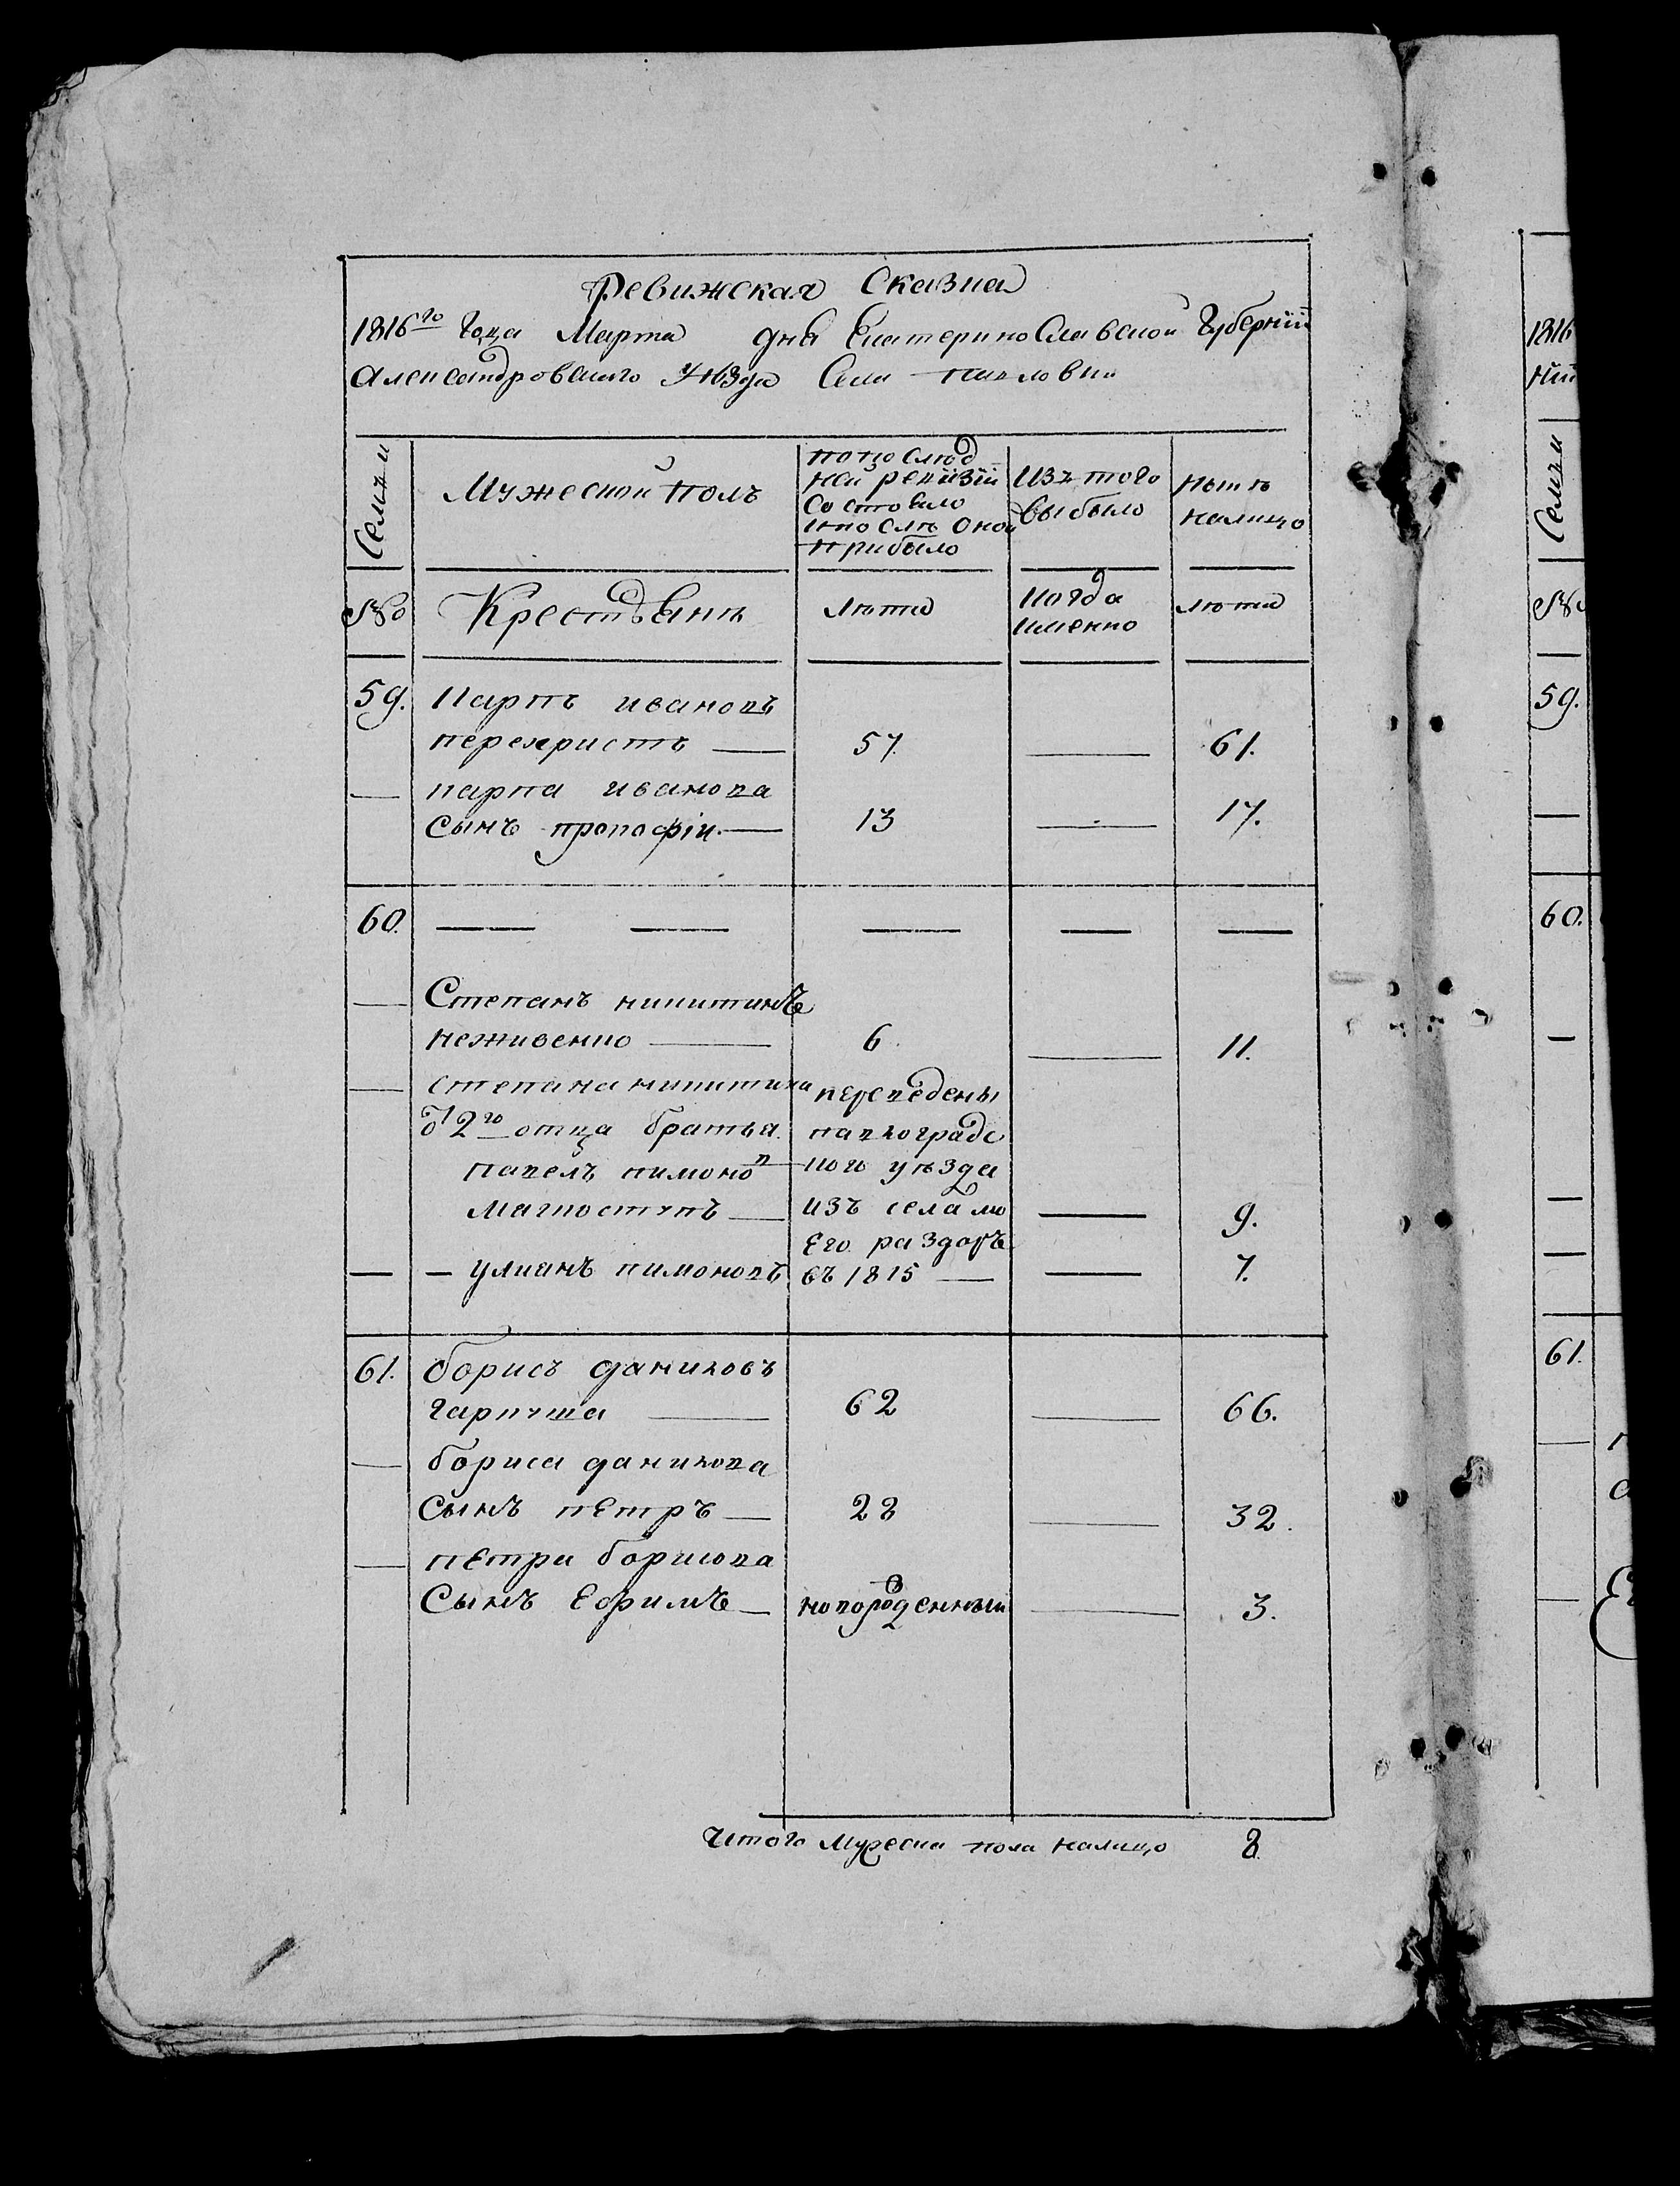 Ревижская Сказка
1816го Года Марта дня Екатеринославской Губернїи
Александровского Уѣзда Села Павловки
Семьи
Мужеской полъ
по последней ревизїи состояло и после оной прибыло
Изъ того выбыло
нынѣ налицо
№
Крестьянѣ
лѣта
когда именно
лѣта
59. Карпъ ивановъ
перехристъ — 57. — 61.
— карпа иванова
сынъ прокофїи — 13 — 17.
60. — — — — —
— Степанъ никитинъ
неживенко — 6. — 11.
— степана никитина переведены
2го отца братья павлоградс
павелъ пимоновъ кого уѣзда
изъ села — 9.
его раздоръ
— — улианъ пимоновъ въ 1815 — — 7.
61. борисъ даниловъ
гаркуша — 62 — 66.
— бориса данилова
сынъ петръ — 28 — 32.
— петра борисова
Сынъ Ефимъ — новорожденный — 3.
Итого Мужеска пола налицо 8.
1816
нїи
Семьи
№
59.
—
60.
—
—
—
61.
—
—